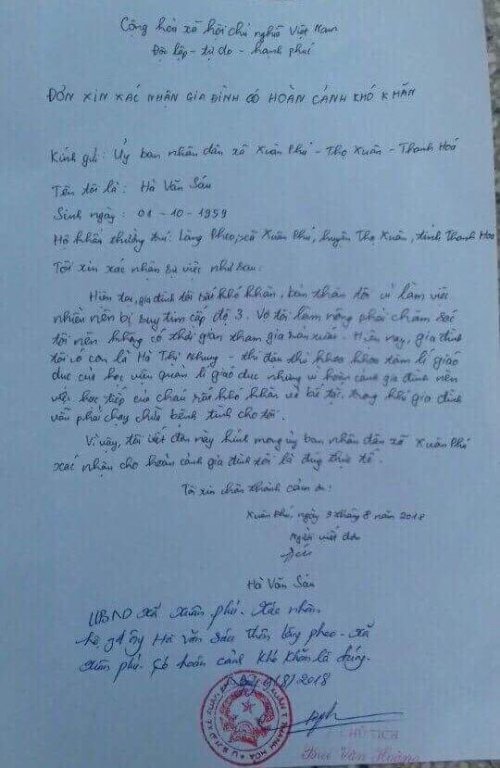 Cộng hòa xã hội chủ nghĩa Việt Nam
Độc lập - tự do - hạnh phúc
ĐƠN XIN XÁC NHẬN GIA ĐÌNH CÓ HOÀN CẢNH KHÓ KHĂN
Kính gửi: Uỷ ban nhân dân xã Xuân Phú - Thọ Xuân - Thanh Hoá
Tên tôi là: Hà Văn Sáu
Sinh ngày: 01 - 10 - 1959
Hộ khẩu thường trú: Làng Pheo, xã Xuân Phú, huyện Thọ Xuân, tỉnh Thanh Hoá
Tôi xin xác nhận sự việc như sau:
Hiện tại, gia đình tôi rất khó khăn, bản thân tôi vì làm việc
nhiều nên bị suy tim cấp độ 3. Vợ tôi làm nông phải chăm sóc
tôi nên không có thời gian tham gia sản xuất. Hiện nay, gia đình
tôi có con là Hà Thị Nhung - thi đậu thủ khoa khoa tâm lí giáo
dục của học viện quản lí giáo dục nhưng vì hoàn cảnh gia đình nên
việc học tiếp của cháu rất khó khăn và bế tắc, trong khi gia đình
vẫn phải chạy chữa bệnh tình cho tôi.
Vì vậy, tôi viết đơn này kính mong ủy ban nhân dân xã Xuân Phú
xác nhận cho hoàn cảnh gia đình tôi là đúng thực tế.
Tôi xin chân thành cảm ơn!
Xuân Phú, ngày 9 tháng 8 năm 2018
Người viết đơn
Sáu
Hà Văn Sáu
UBND xã Xuân phú. Xác nhận
hộ gđ ông Hà Văn Sáu thôn làng pheo - xã
Xuân phú. Có hoàn cảnh khó khăn là đúng.
/8/2018
CHỦ TỊCH